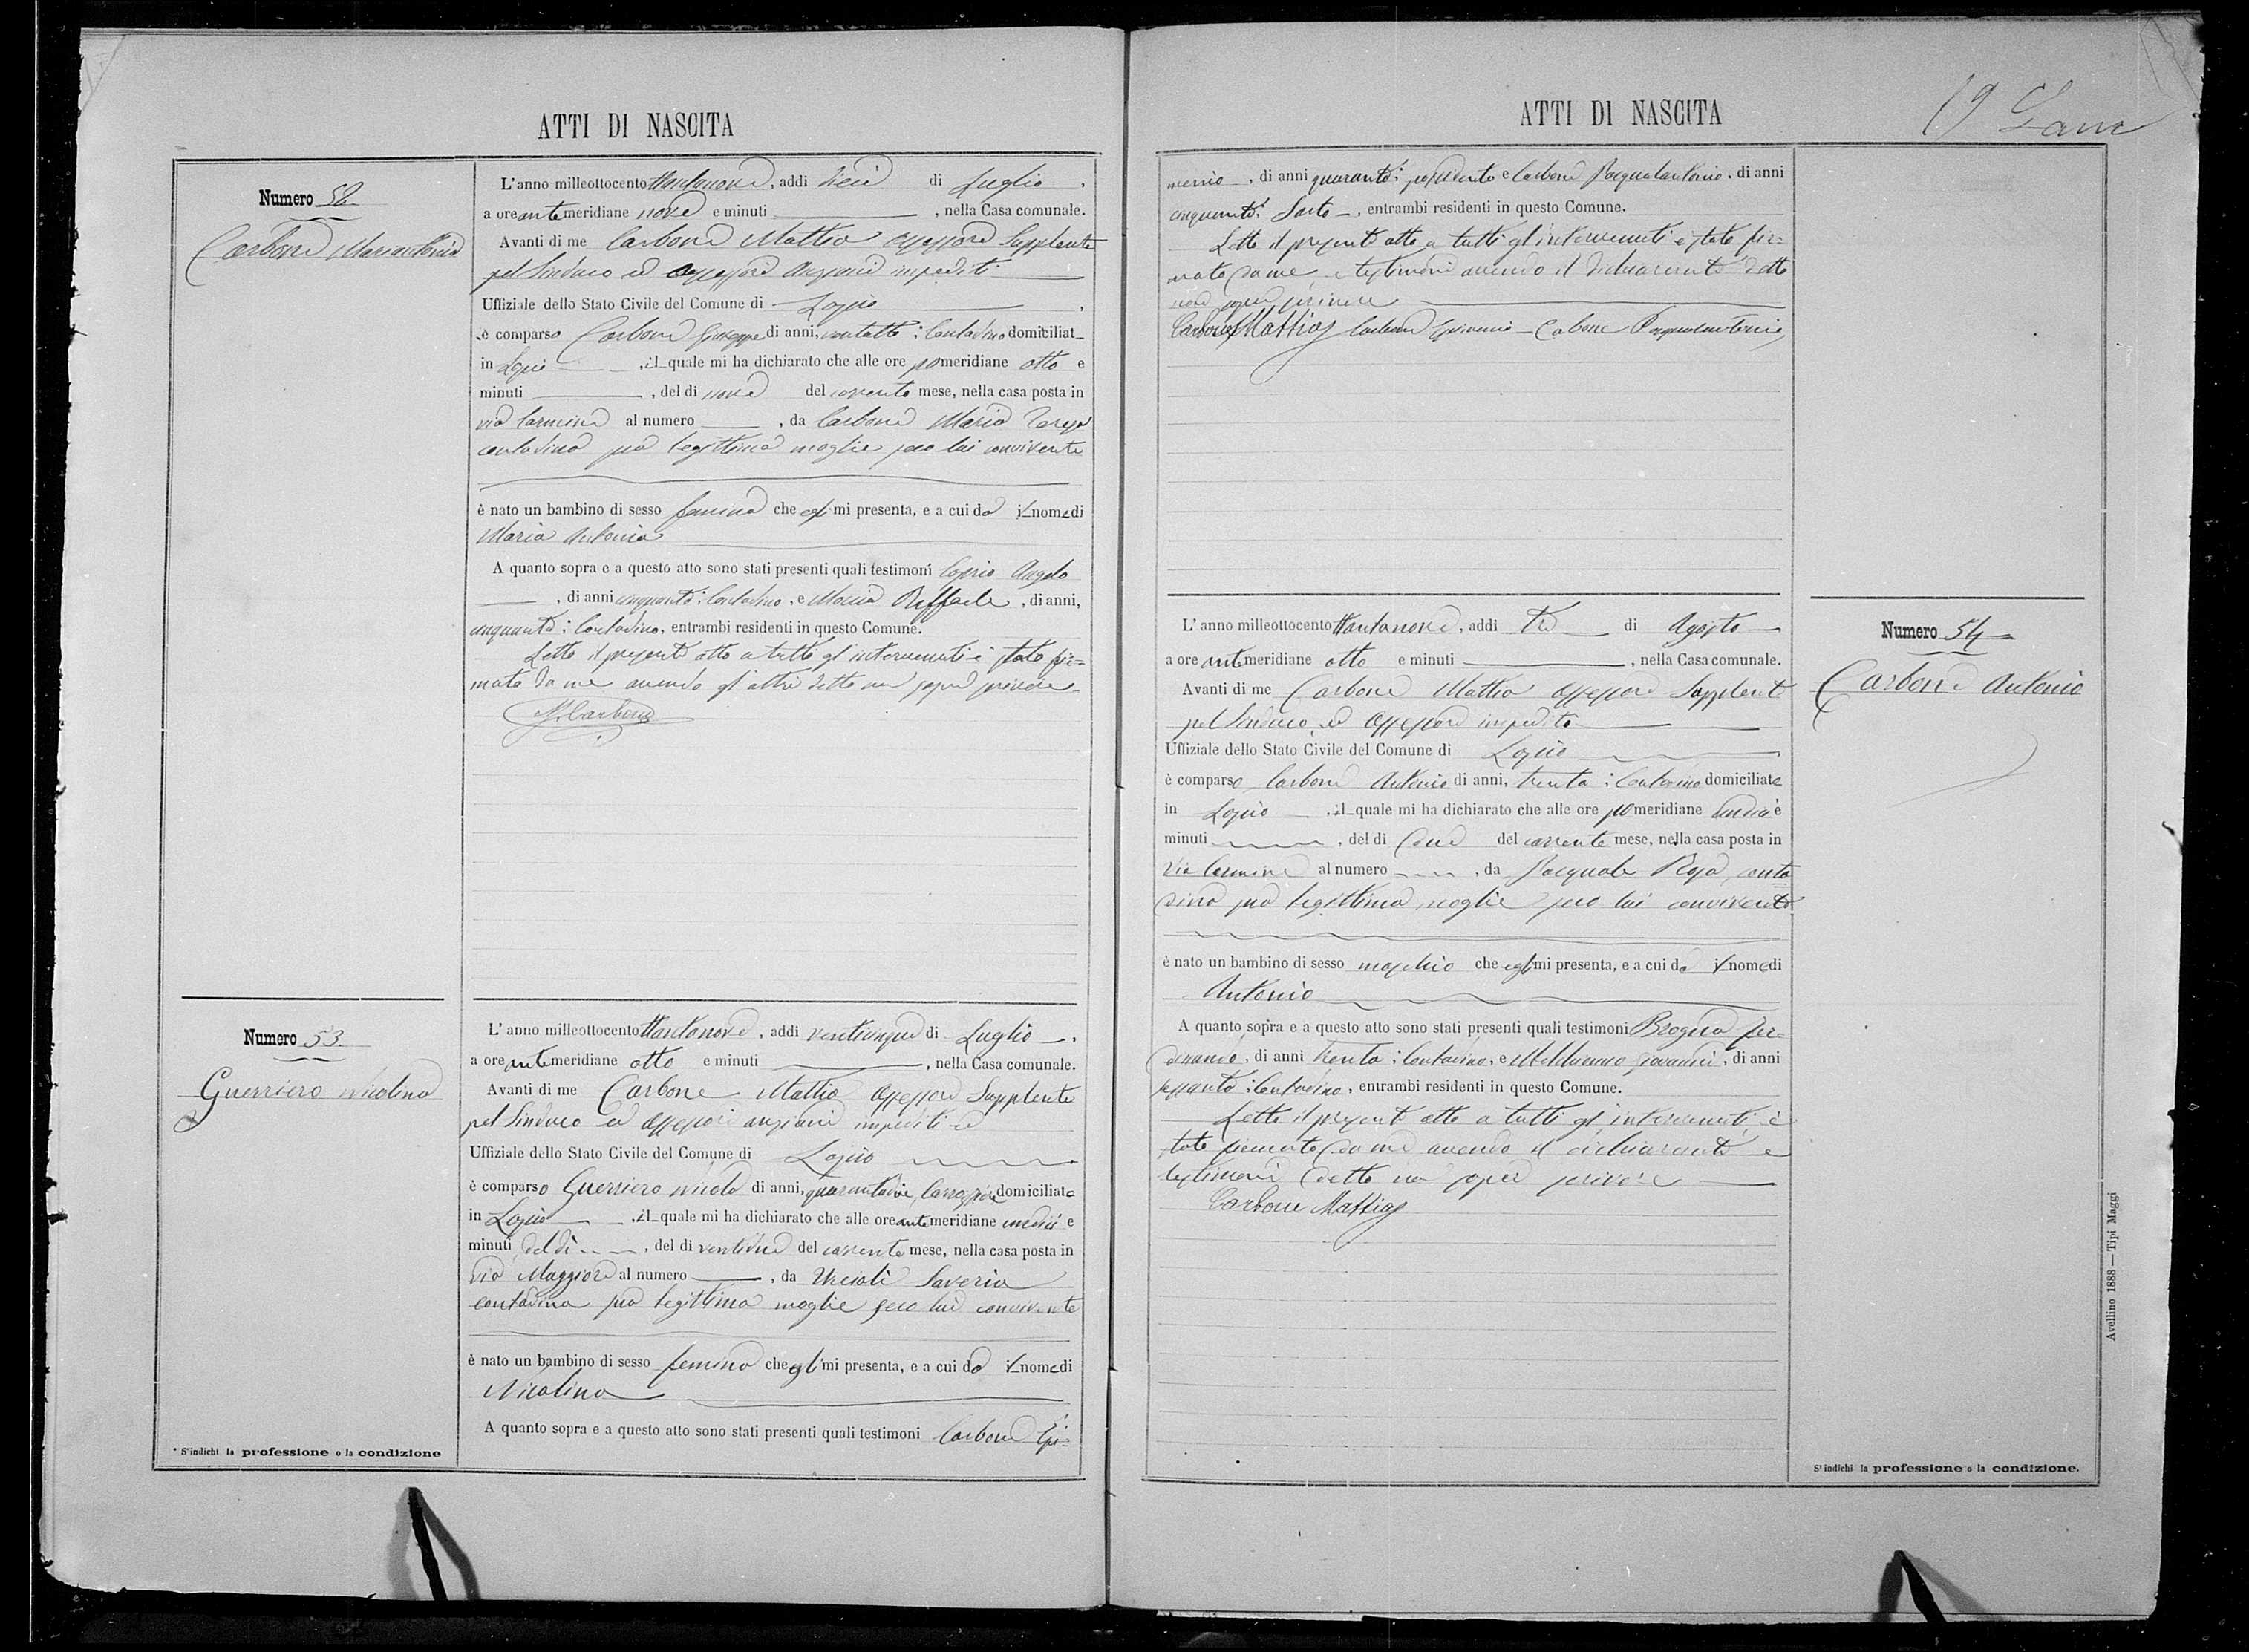 ATTI DI NASCITA
Numero 52
Carbone Mariantonia
L'anno milleottocento ottantanove, addi dieci di Luglio,
a ore antemeridiane nove e minuti, nella Casa comunale.
Avanti di me Carbone Mattia Assessore Supplente
pel Sindaco ed Assessori Anziani impediti
Uffiziale dello Stato Civile del Comune di Lapio,
è comparso Carbone Giuseppe di anni, ventotto; Contadino domiciliat
in Lapio, il quale mi ha dichiarato che alle ore pomeridiane otto e
minuti, del dì nove del corrente mese, nella casa posta in
via Carmine al numero, da Carbone Maria Teresa
contadina sua legittima moglie seco lui convivente
è nato un bambino di sesso femina che egli mi presenta, e a cui dà il nome di
Maria Antonia
A quanto sopra e a questo atto sono stati presenti quali testimoni Angelo
, di anni cinquanta; Contadino, e Raffaele, di anni,
cinquanta; Contadino, entrambi residenti in questo Comune.
Letto il presente atto a tutti gl'intervenuti è stato fir=
mato da me avendo gl'altri detto non sapere scrivere
M. Carbone
Numero 53
Guerriero Nicolina
L'anno milleottocento ottantanove, addi venticinque di Luglio,
a ore antemeridiane otto e minuti, nella Casa comunale.
Avanti di me Carbone Mattia Assessore Supplente
pel Sindaco ed Assessori anziani impediti
Uffiziale dello Stato Civile del Comune di Lapio
è comparso Guerriero Nicola di anni, quarantadue, domiciliato
in Lapio, il quale mi ha dichiarato che alle ore antemeridiane undici e
minuti del dì, del dì ventidue del corrente mese, nella casa posta in
via Maggiore al numero, da Urcioli Saveria
contadina sua legittima moglie seco lui convivente
è nato un bambino di sesso femina che egli mi presenta, e a cui dà il nome di
Nicolina
A quanto sopra e a questo atto sono stati presenti quali testimoni Carbone
* S'indichi la professione o la condizione
ATTI DI NASCITA
19
, di anni quaranta; possidente e Carbone Pasqualantonio, di anni
cinquanta; Sarto, entrambi residenti in questo Comune.
Letto il presente atto a tutti gl'intervenuti è stato fir=
mato da me e testimoni avendo il dichiarante detto
non sapere scrivere
Carbone Mattia Carbone Carbone Pasqualantonio
L'anno milleottocento ottantanove, addi tre di Agosto
a ore antemeridiane otto e minuti, nella Casa comunale.
Avanti di me Carbone Mattia Assessore Supplente
pel Sindaco, ed Assessore impedito
Uffiziale dello Stato Civile del Comune di Lapio
è comparso Carbone Antonio di anni, trenta; Contadino domiciliato
in Lapio, il quale mi ha dichiarato che alle ore pomeridiane undici e
minuti, del dì due del corrente mese, nella casa posta in
via Carmine al numero, da Pasquale Rosa, conta
dina sua legittima moglie seco lui convivente
è nato un bambino di sesso maschio che egli mi presenta, e a cui dà il nome di
Antonio
A quanto sopra e a questo atto sono stati presenti quali testimoni Brogna Fer=
dinando, di anni trenta; Contadino, e Giovanni, di anni
sessanta; Contadino, entrambi residenti in questo Comune.
Letto il presente atto a tutti gl'intervenuti, è
stato firmato da me avendo il dichiarante e
testimoni detto non sapere scrivere
Carbone Mattia
Numero 54
Carbone Antonio
S'indichi la professione o la condizione.
Avellino 1888 — Tipi Maggi